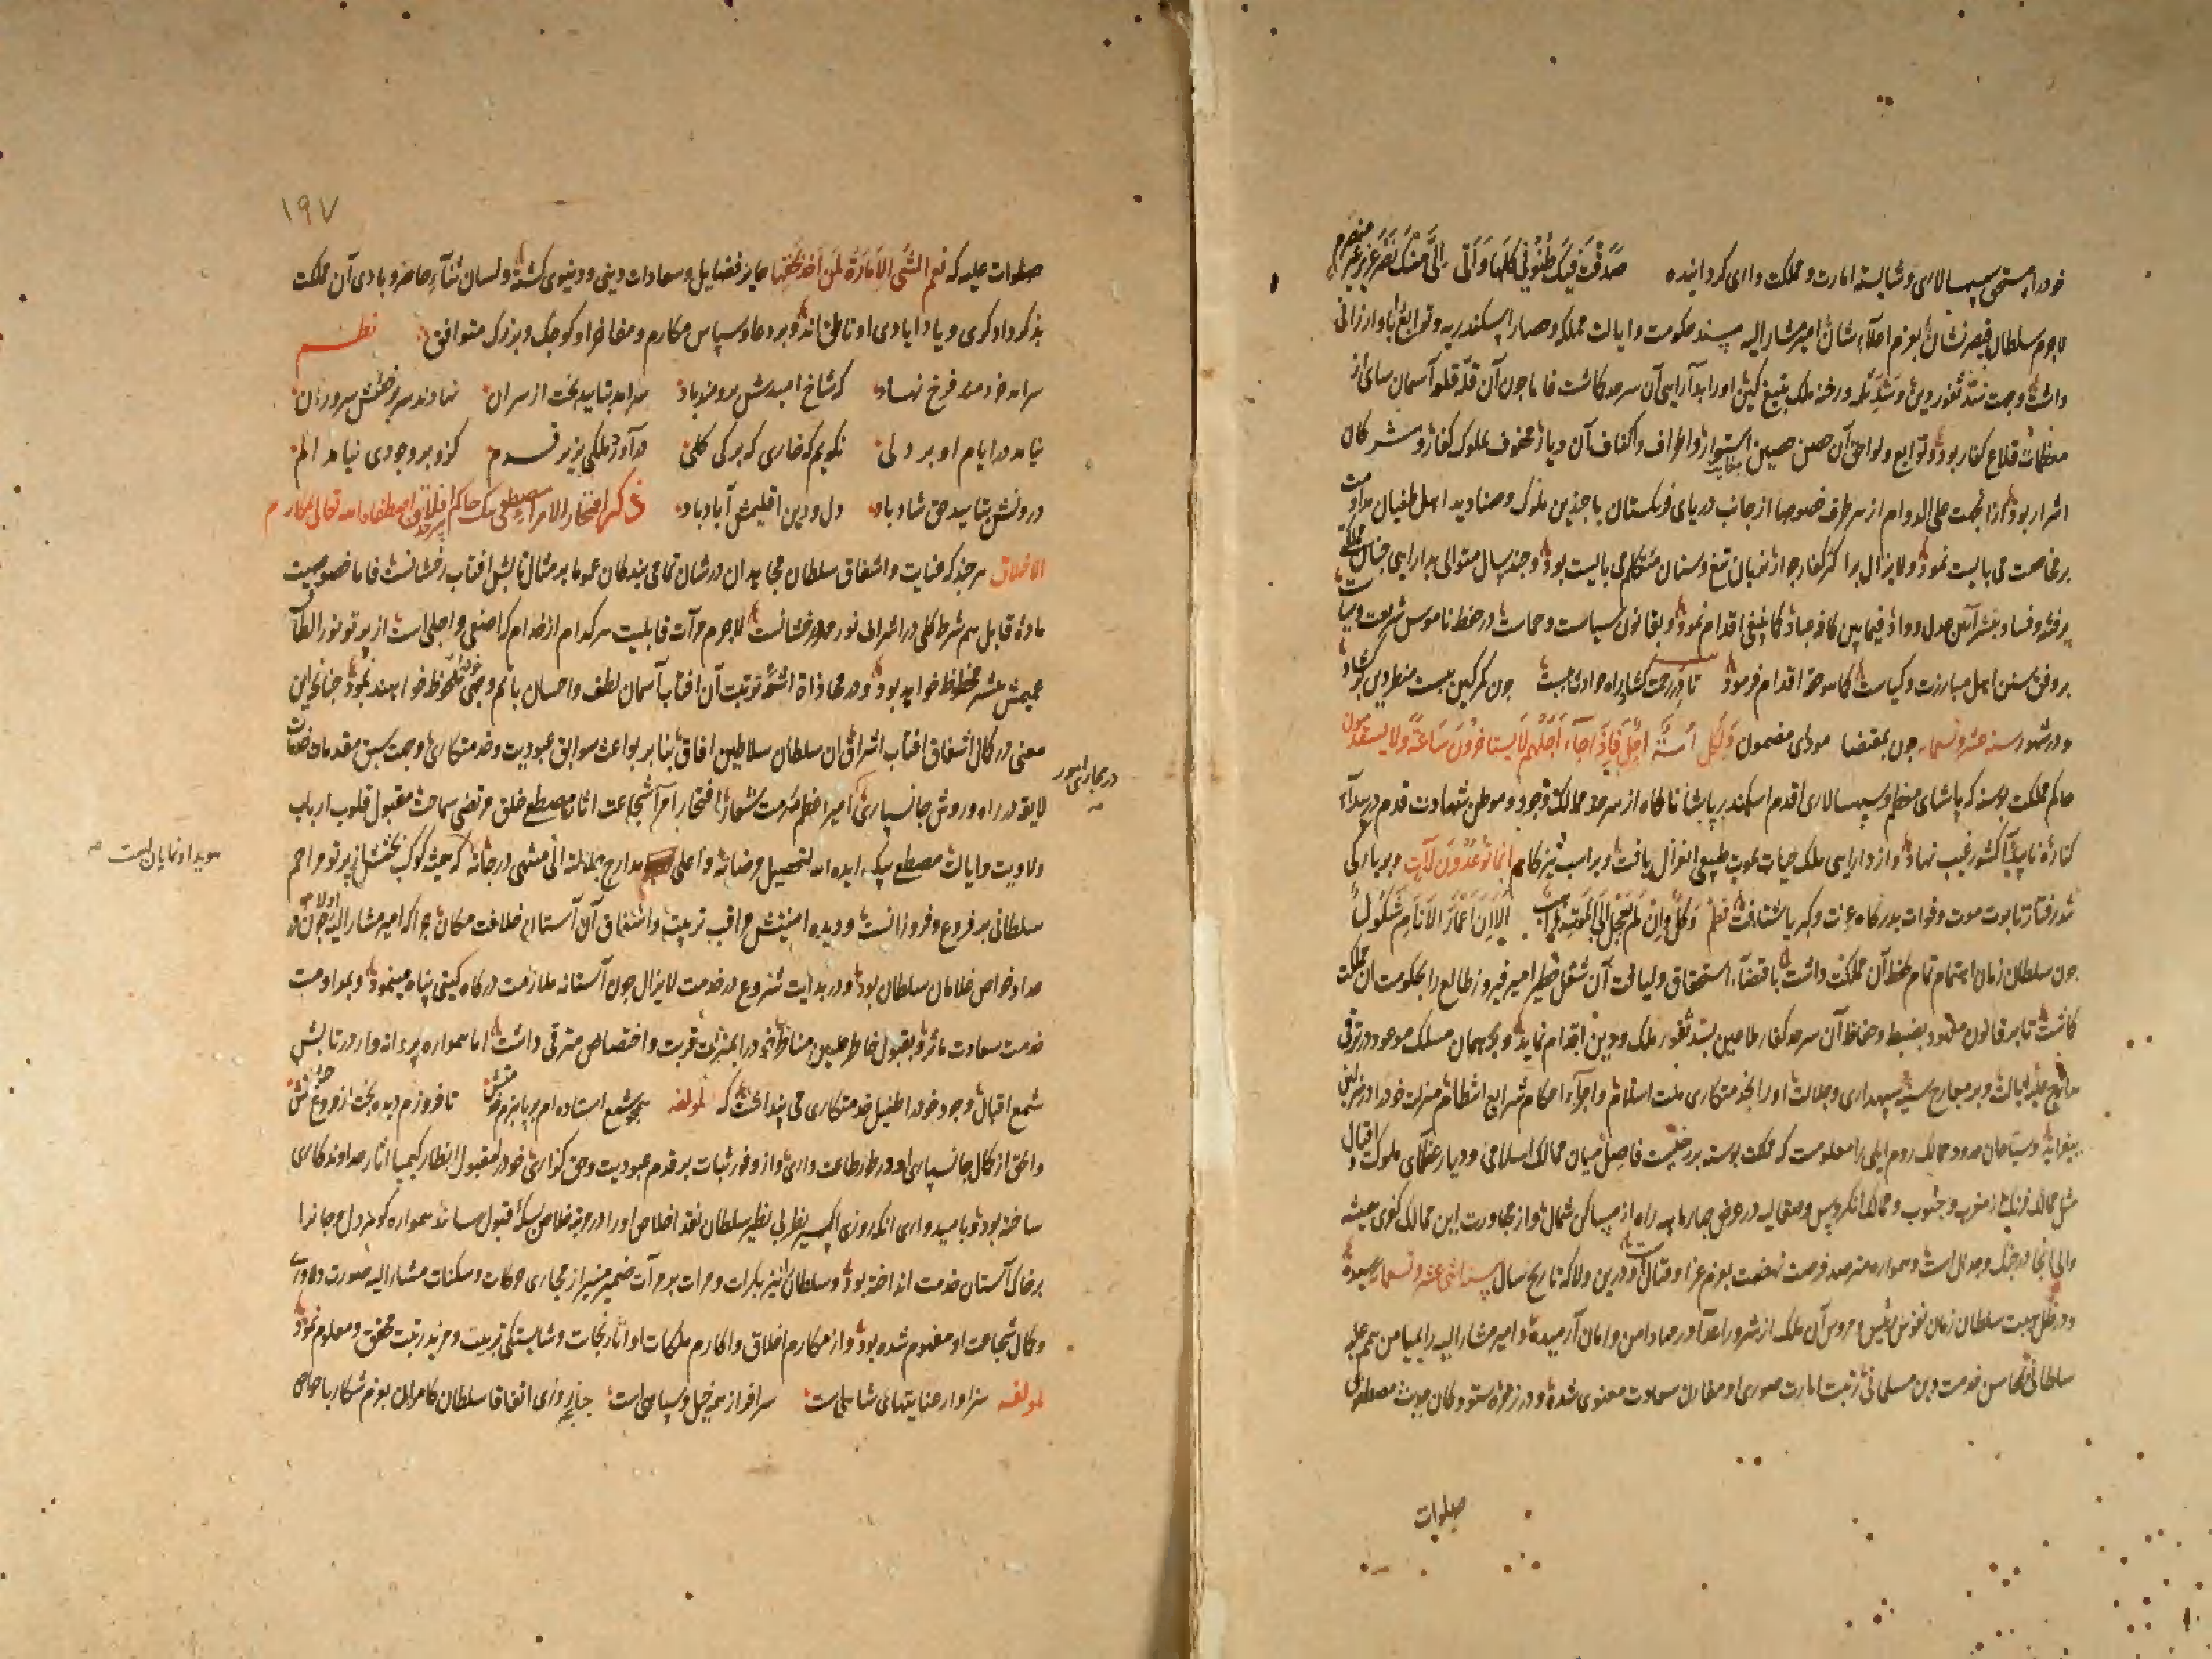 خود را مستحق سپهسالاری و شایسته امارت و مملکت داری کردانیده صَدَقَتْ فِیکَ ظُنُونِی کُلُّهَا وَاَتٰی
لاجرم سلطان قیصرنشان بعزم اعلاء شان امیر مشار الیه مسند حکومت و ایالت مملکه و حصار اسکندریه و توابع باو ارزانی
داشت وجهت سدّ ثغور دین و رخنه ملک بتیغ کین او را بدارایی آن سرحد کماشت فاما چون آن قلّه قلعه آسمان سای از
معظمات قلاع کفار بود و توابع و لواحق آن حصن حصین استوار و اطراف و اکناف آن دیار محفوف بملوک کفار و مشرکان
اشرار بود از آنجهت علی الدوام از هر طرف خصوصا از جانب دریای فرنکستان با چندین ملوک و صنادید اهل طغیان مداومت
بر مخاصمت می بایست نمود ولایزال برا کثر کفار بزبان تیغ و سنان متکلم می بایست بود و چند سال متوالی بدارایی چنان مملکتی
پر فتنه و فساد بنشر آئین عدل و داد فیما بین کافه عباد کما ینبغی اقدام نمود و بقانون سیاست و حماست در حفظ ناموس شریعت
بر وفق سنن اهل مبارزت و کیاست کما هو حقه اقدام فرمود تا در رحمت کشاید راه حوادث ببست چون کمر کین ببست
و در شهور سنه عشر و تسعمایه چون بمقتضا مودای مضمون وَلِکُلِّ اُمَّةٍ اَجَلٌ فَاِذَا جَآءَ اَجَلُهُمْ لَا یَسْتَأخِرُونَ سَاعَةً وَلَا یَسْتَقْدِمُونَ
حاکم مملکت بوسنه که پاشای معظم و سپهسالاری اقدم اسکندر پاشا ناکاه از سرحد ممالک وجود و موطن شهادت قدم در بیدآء
کناره ناپیدآ کشور غیب نهاد و از دارایی ملک حیات بموت طبیعی انعزال یافت و بر اسب تیزکام اِنَّمَا تُوعَدُونَ لَآتٍ و بر بارکی
تندرفتار تابوت موت و فوات بدرکاه عزت و کبریا شتافت نظم
چون سلطان زمان اهتمام تمام بحفظ آن مملکت داشت باقتضآء استحقاق و لیاقت آن شغل خطیر امیر فیروز طالع را بحکومت آن مملکت
کماشت تا بر قانون معهود بضبط و حفاظ آن سرحد کفار ملاعین بسدّ ثغور ملک و دین اقدام نماید و بجهمان مسلک موعود در ترقی
سپهداری و جلالت او را بخدمتکاری ملت اسلام و اجرآء احکام شرایع انتظام منزلت خود را
بیفزاید و سیاحان حدود ممالک روم ایلی را معلومست که مملکت بوسنه برزخیست فاصل میان ممالک اسلامی و دیار عظمای ملوک
مثل ممالک فرنک از مغرب و جنوب و ممالک انکروس و صقالبه در عرض چهار ماهه راه از مساکن شمال و از مجاورت این ممالک کفری همیشه
والی آنجا در جنک و جدال است و همواره مترصد فرصت نهضت بعزم غزا و قتال و درین ولا که تاریخ سال بسنه اثنی عشر و تسعمایه رسیده
و در ظل هیبت سلطان زمان نفوس و عروس آن ملک از شرور اعدآ در مهاد امن و امان آرمیده و امیر مشار الیه را بمیامن همم علیه
سلطانی محاسن خدمت دین مسلمانی زینت امارت صوری او مقارن سعادت معنوی شده و در زمره ستودکان حدیث مصطفوی
صلوات
۱۹۷
صلوات علیه که نِعْمَ الشَّیْ الْاِمَارَةُ لِمَنْ اَخَذَ بِحَقِّهَا حایز فضایل و سعادات دینی و دنیوی کشته ولسان ثنآء حاضر و بادی آن مملکت
بذکر دادکری و یاد ایادی او ناطق اند و بر دعا و سپاس مکارم و مفاخر او کوچک و بزرک متوافق نظم
سرامد خردمند فرخ نهاد که شاخ امیدش برومند باد سرامد بتایید بخت از سران نهادند سر بر خطش سروران
نیامد در ایام او بر دلی نکویم که خاری که برک کلی درآورد ملکی بزیر قدم کزو بر وجودی نیامد الم
درونش بتایید حق شاد باد دل و دین اقلیمش آباد باد ذکر افتخار الامرا مصطفی بیک حاکم افلاق اصطفاه الله تعالی بمکارم
الاخلاق هر چند که عنایت و اشفاق سلطان مجاهدان در شان تمامی بندکان عموما بر مثال تابش آفتاب رخشانست فاما خصوصیت
ماده قابل هم شرط کلی در اشراق نور خور درخشانست لاجرم مرآت قابلیت هر کدام از خدام که اصفی و اجلی است از پرتو نور
عمیمش همیشه محظوظ خواهد بود و در محاذاة اشعّه تربیت آن آفتاب آسمان لطف و احسان باتم وجهی ملحوظ خواهند نمود چنانچه این
معنی در کمال اشفاق آفتاب اشراق آن سلطان سلاطین آفاق بنا بر بواعث سوابق عبودیت و خدمتکاری وجهت سبق مقدمات
لایقه در راه و روش جانسپاری امیر اعظم مکرمت شعار افتخار امرآ شجاعت آثار مصطفی خلق مرتضی سماحت مقبول قلوب ارباب
ولایت و ایالت مصطفی بیک ایده الله لتحصیل مرضاته و اعلی مدارج جلالته الی منتهی درجاته که همیشه کوکب بختش از پرتو مراحم
سلطانی پر فروغ و فروزانست و دیده امنیتش مراقب تربیت و اشفاق آن آستان خلافت مکان چرا که امیر مشار الیه اولا چون در
عداد خواص غلامان سلطان بود و در بدایت شروع در خدمت لایزال چون آستانه ملازمت درکاه کیتی پناه مینمود و بمداومت
خدمت سعادت ماثر و بقبول خاطر خود را بمنزلت قربت و اختصاص مترقی داشت اما همواره پروانه وار در تابش
شمع اقبال وجود خود را طفیل خدمتکاری می پنداشت که لمولفه همچو شمع استاده ام بر پا ببزم خدمتش تا فروزم دیده بخت از فروغ
والحق از کمال جانسپاری او در طور طاعت داری و از وفور ثبات بر قدم عبودیت و حق کزاری خود را مقبول انظار کیمیا آثار خداوندکاری
ساخته بود و بامید واری آنکه روزی اکسیر نظر بی نظیر سلطان نقد اخلاص او را در بوته خلاص بسکّه قبول رساند همواره کوهر دل و جانرا
بر خاک آستان خدمت انداخته بود و سلطان نیز بکرات و مرات بر مرآت ضمیر منیر از مجاری حرکات و سکنات مشار الیه صورت دلاوری
و کمال شجاعت او مفهوم شده بود و از مکارم اخلاق و اکارم ملکات او آثار نجات و شایستکی تربیت و مزید رتبت محقق و معلوم نمود
لمولفه سزاوار عنایتهای شاهی است سرافراز همه خیل و سپاهی است چنانچه روزی اتفاقا سلطان کامران بعزم شکار با خواص
در مجاری امور
هویدا و نمایان است